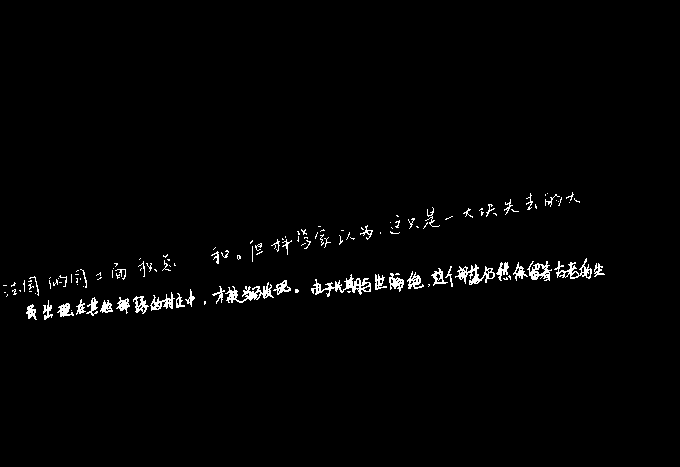 法国的国土面积总和。但科学家认为，这只是一大块失去的大
员出现在其他部落的村庄中，才被首次发现。由于长期与世隔绝，这个部落仍然保留着古老的生